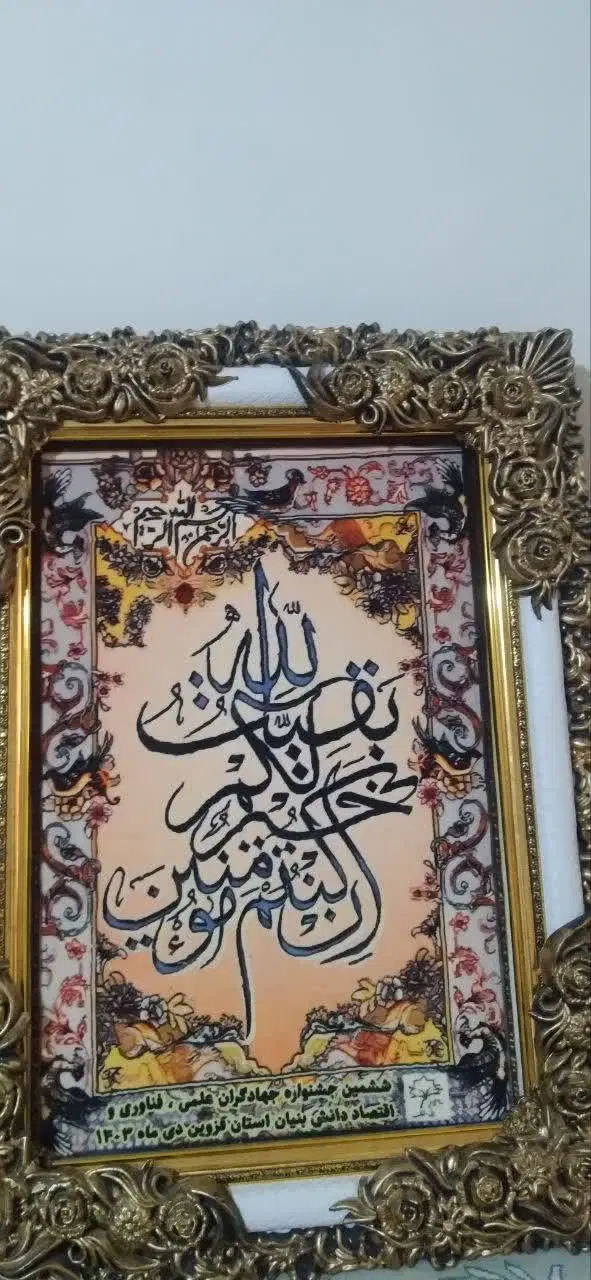 بسم الله الرحمن الرحیم
بقیت الله
خیر لکم
ان کنتم مؤمنین
ششمین جشنواره جهادگران علمی، فناوری و
اقتصاد دانش بنیان استان قزوین دی ماه ۱۴۰۳